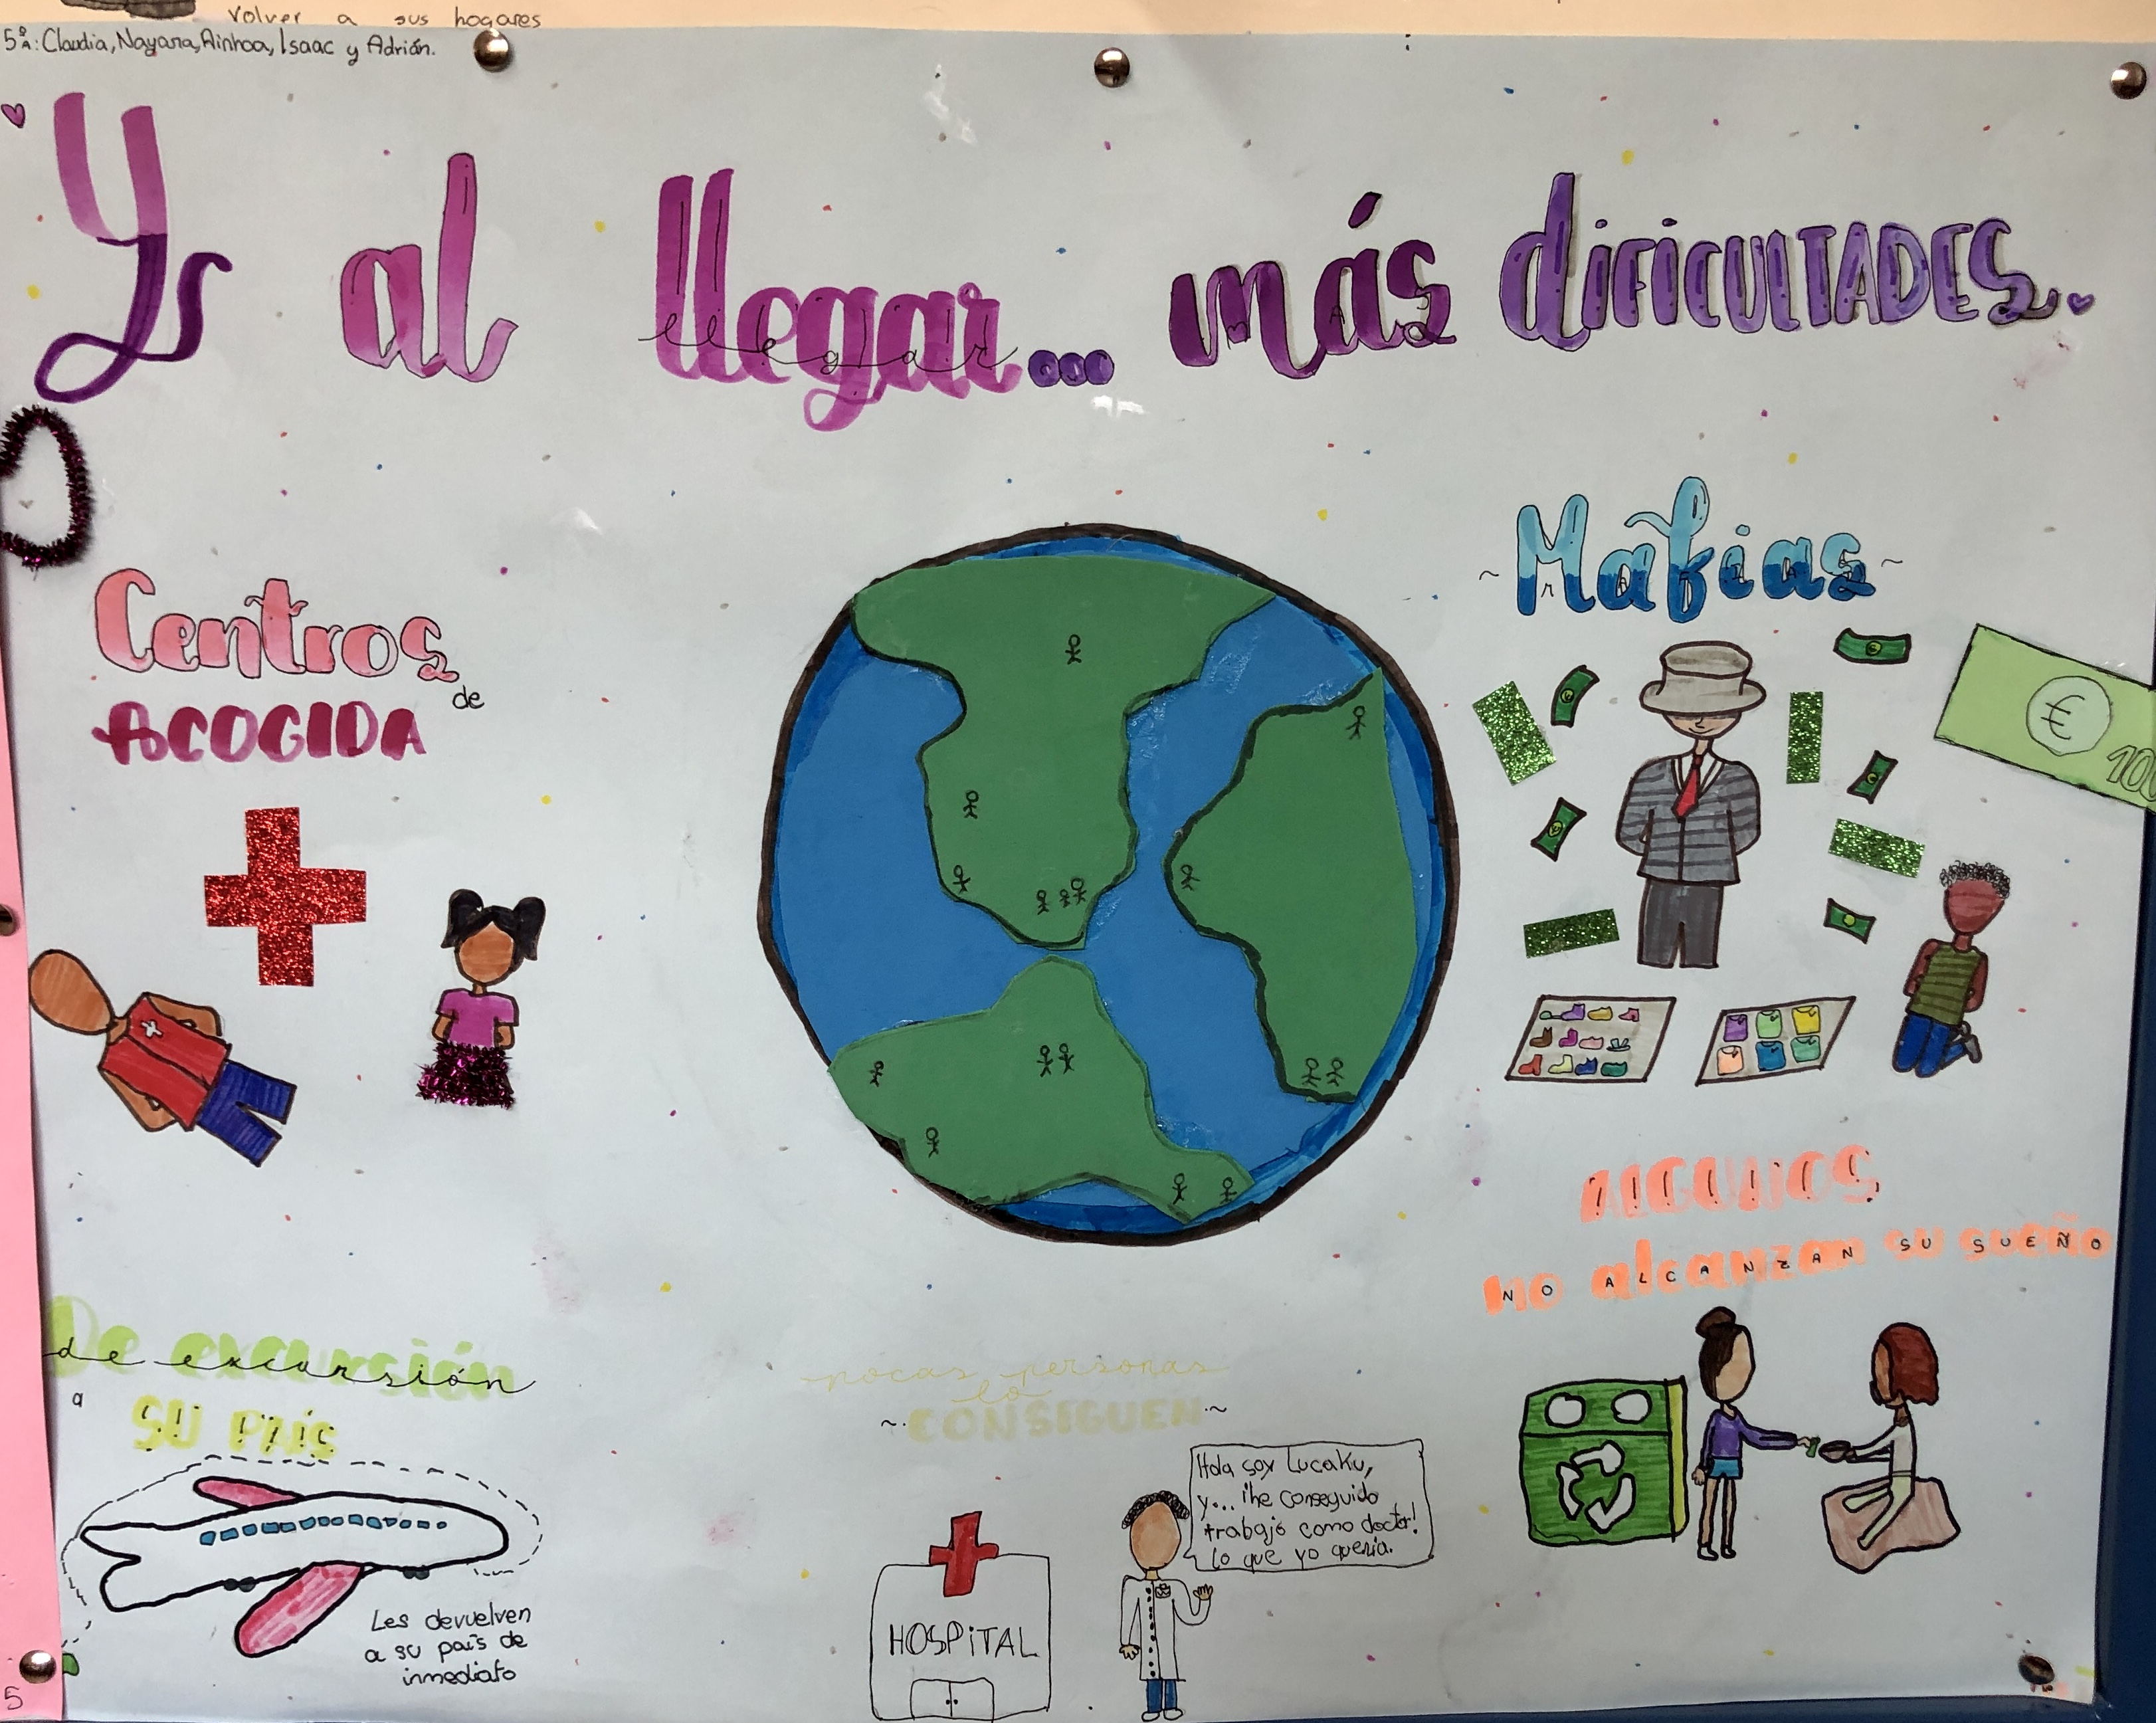 volver a sus hogares
5ºA: Claudia, Nayara, Ainhoa, Isaac y Adrián.
Y al llegar... más dificultades.
llegar
Centros
de
ACOGIDA
Mafias
€
100
Algunos
no alcanzan su sueño
NO ALCANZAN SU SUEÑO
De excursión
de excursión
a
SU PAÍS
Les devuelven
a su país de
inmediato
pocas personas
lo
CONSIGUEN
HOSPITAL
Hola soy Lucaku,
y... ¡he conseguido
trabajo como doctor!
lo que yo quería.
5